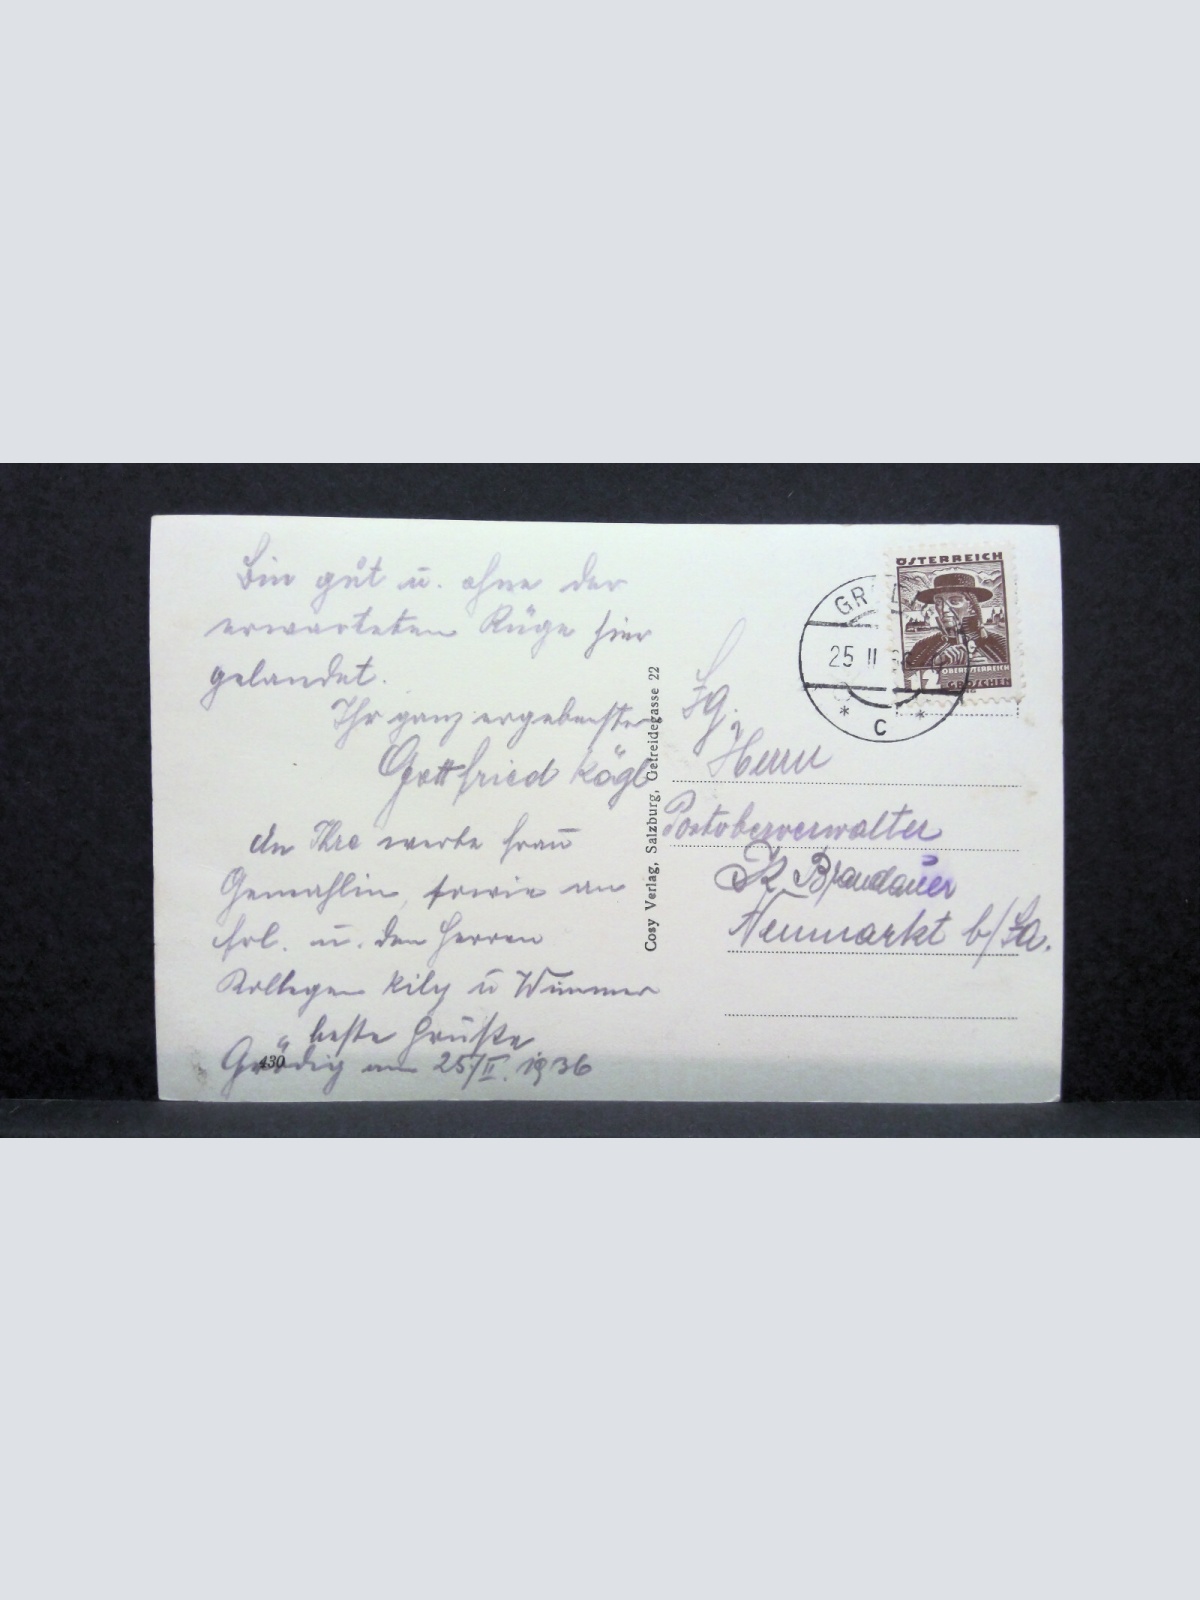 Bin gut u. ohne der
erwarteten Rüge hier
gelandet.
Ihr ganz ergebenster
Gottfried Kögl
An Ihre werte Frau
Gemahlin, sowie an
Frl. u. den Herren
Kollegen Kily u Wimmer
beste Grüße
Grödig am 25/II. 1936
430
Cosy Verlag, Salzburg, Getreidegasse 22
ÖSTERREICH
OBERÖSTERREICH
12 GROSCHEN
25 II
C
Herrn
Postoberverwalter
Brandauer
Neumarkt b/Sa.